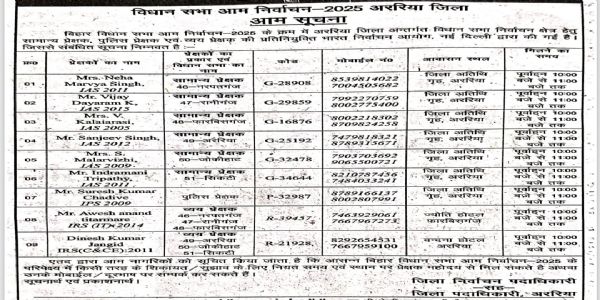 विधान सभा आम निर्वाचन-2025 अररिया जिला
आम सूचना
बिहार विधान सभा आम निर्वाचन-2025 के क्रम में अररिया जिला अन्तर्गत विधान सभा निर्वाचन क्षेत्र हेतु
सामान्य प्रेक्षक, पुलिस प्रेक्षक एवं व्यय प्रेक्षक की प्रतिनियुक्ति भारत निर्वाचन आयोग, नई दिल्ली द्वारा की गई है।
जिससे संबंधित सूचना निम्नवत है:-
क्र0 प्रेक्षकों का नाम प्रेक्षकों का प्रकार एवं विधान सभा का नाम कोड मोबाईल न0 आवासन स्थल मिलने का समय
01 Mrs. Neha Marvya Singh, IAS 2011 सामान्य प्रेक्षक 46-नरपतगंज G-28908 8539814022 7004505682 जिला अतिथि गृह, अररिया पूर्वाहन 10:00 बजे से 11:00 बजे तक
02 Mr. Vijay Dayaram K, IAS 2015 सामान्य प्रेक्षक 47-रानीगंज G-29859 7992270239 7002775400 जिला अतिथि गृह, अररिया पूर्वाहन 10:00 बजे से 11:00 बजे तक
03 Mrs. V. Kalaiarasi, IAS 2005 सामान्य प्रेक्षक 48-फारबिसगंज G-16876 8002218302 8709824258 जिला अतिथि गृह, अररिया पूर्वाहन 10:00 बजे से 11:00 बजे तक
04 Mr. Sanjeev Singh, IAS 2012 सामान्य प्रेक्षक 49-अररिया G-25192 7479818321 8789315671 जिला अतिथि गृह, अररिया पूर्वाहन 10:00 बजे से 11:00 बजे तक
05 Mrs. S. Malarvizhi, IAS 2009 सामान्य प्रेक्षक 50-जोकीहाट G-32478 7903703692 9065390721 जिला अतिथि गृह, अररिया पूर्वाहन 10:00 बजे से 11:00 बजे तक
06 Mr. Indramani Tripathy, IAS 2011 सामान्य प्रेक्षक 51-सिकटी G-34644 8210787456 7484033241 जिला अतिथि गृह, अररिया पूर्वाहन 10:00 बजे से 11:00 बजे तक
07 Mr. Suresh Kumar Chadive IPS 2009 पुलिस प्रेक्षक P-32987 8789166137 8002807991 जिला अतिथि गृह, अररिया पूर्वाहन 10:00 बजे से 11:00 बजे तक
08 Mr. Awesh anand titarmare IRS (IT)-2014 व्यय प्रेक्षक 46-नरपतगंज 47-रानीगंज 48-फारबिसगंज R-39457 7463929061 7667967273 ज्योति होटल फारबिसगंज पूर्वाहन 10:00 बजे से 11:00 बजे तक
09 Dinesh Kumar Jangid IRS(C&CE).2011 व्यय प्रेक्षक 49-अररिया 50-जोकीहाट 51-सिकटी R-21928 8292654531 7667859100 होटल, अररिया पूर्वाहन 10:00 बजे से 11:00 बजे तक
एतद द्वारा आम नागरिकों को सूचित किया जाता है, कि आसन्न बिहार विधान सभा आम निर्वाचन-2025 के
परिपेक्ष्य में किसी तरह के शिकायत/सुझाव के लिए नियत समय एवं स्थान पर प्रेक्षक महोदय से मिल सकते हैं अथवा
उनके मोबाईल/दूरभाष पर सम्पर्क कर सकते हैं।
सूचनार्थ एवं प्रकाशनार्थ।
जिला निर्वाचन पदाधिकारी
-सह-
जिला पदाधिकारी, अररिया